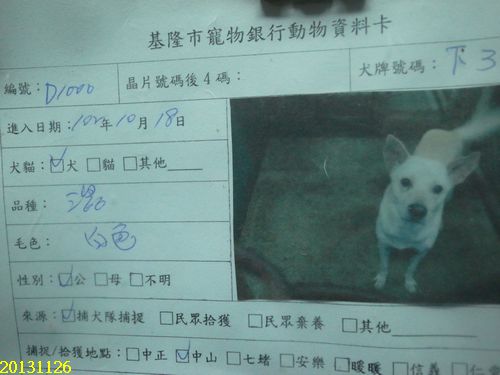 基隆市寵物銀行動物資料卡
編號：D1000 晶片號碼後4碼： 犬牌號碼：下3
進入日期：102年10月18日
犬貓：☑犬 □貓 □其他____
品種：混
毛色：白色
性別：☑公 □母 □不明
來源：☑捕犬隊捕捉 □民眾拾獲 □民眾棄養 □其他____
捕捉/拾獲地點：□中正 ☑中山 □七堵 □安樂 □暖暖 □信義 □仁
20131126